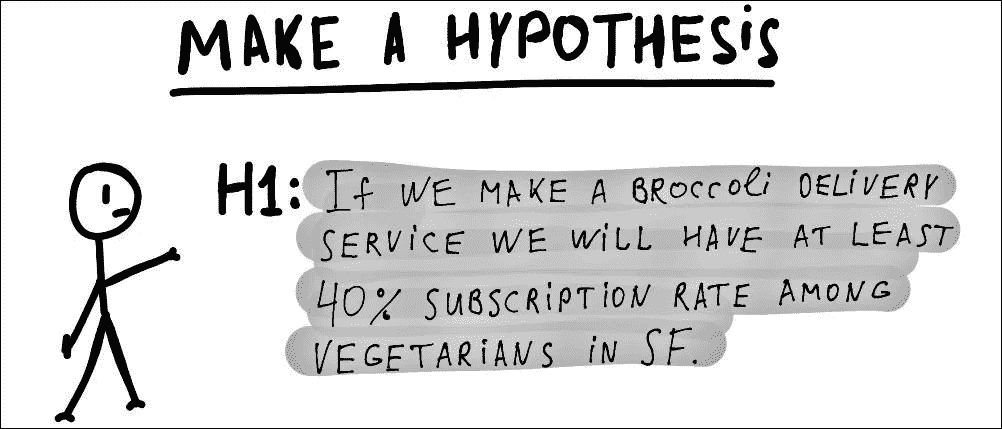 MAKE A HYPOTHESiS
H1: If WE MAKE A BRoccoli DELiVERY
SERViCE WE WiLL HAVE AT LEAST
40% SUBSCRiPTiON RATE AMONG
VEGETARiANS iN SF.